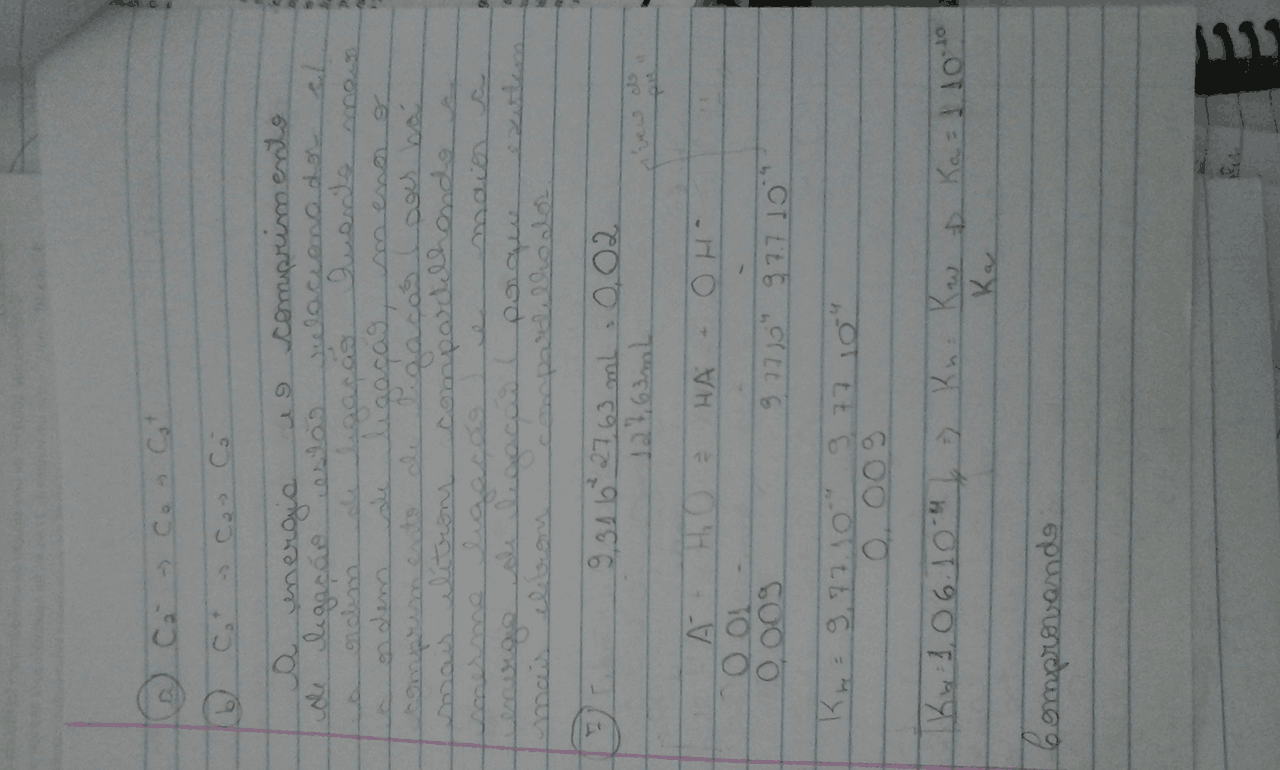 a) C₂⁻ → C₂ → C₂⁺
b) C₂⁺ → C₂ → C₂⁻
A energia e o comprimento
de ligação estão relacionados c/
a ordem de ligação. Quanto mais
a ordem de ligação, menor o
comprimento de ligação (pois há
mais elétrons compartilhando a
mesma ligação) e maior a
energia de ligação (porque existem
mais elétron compartilhados
7) 27,63 ml . 0,02
127,63 ml
A⁻ + H₂O ⇌ HA + OH⁻
0,01 - - -
0,009 9,77 10⁻⁴ 9,77 10⁻⁴
Kh = 9,77.10⁻⁴ 9,77 10⁻⁴
0,009
Kh = 1,06.10⁻⁴ ⇒ Kh = Kw → Ka = 1 10⁻¹⁰
Ka
Comprovando